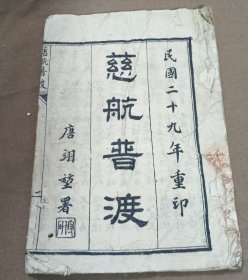 民國二十九年重印
慈航普渡
唐翊堃署
慈航普渡